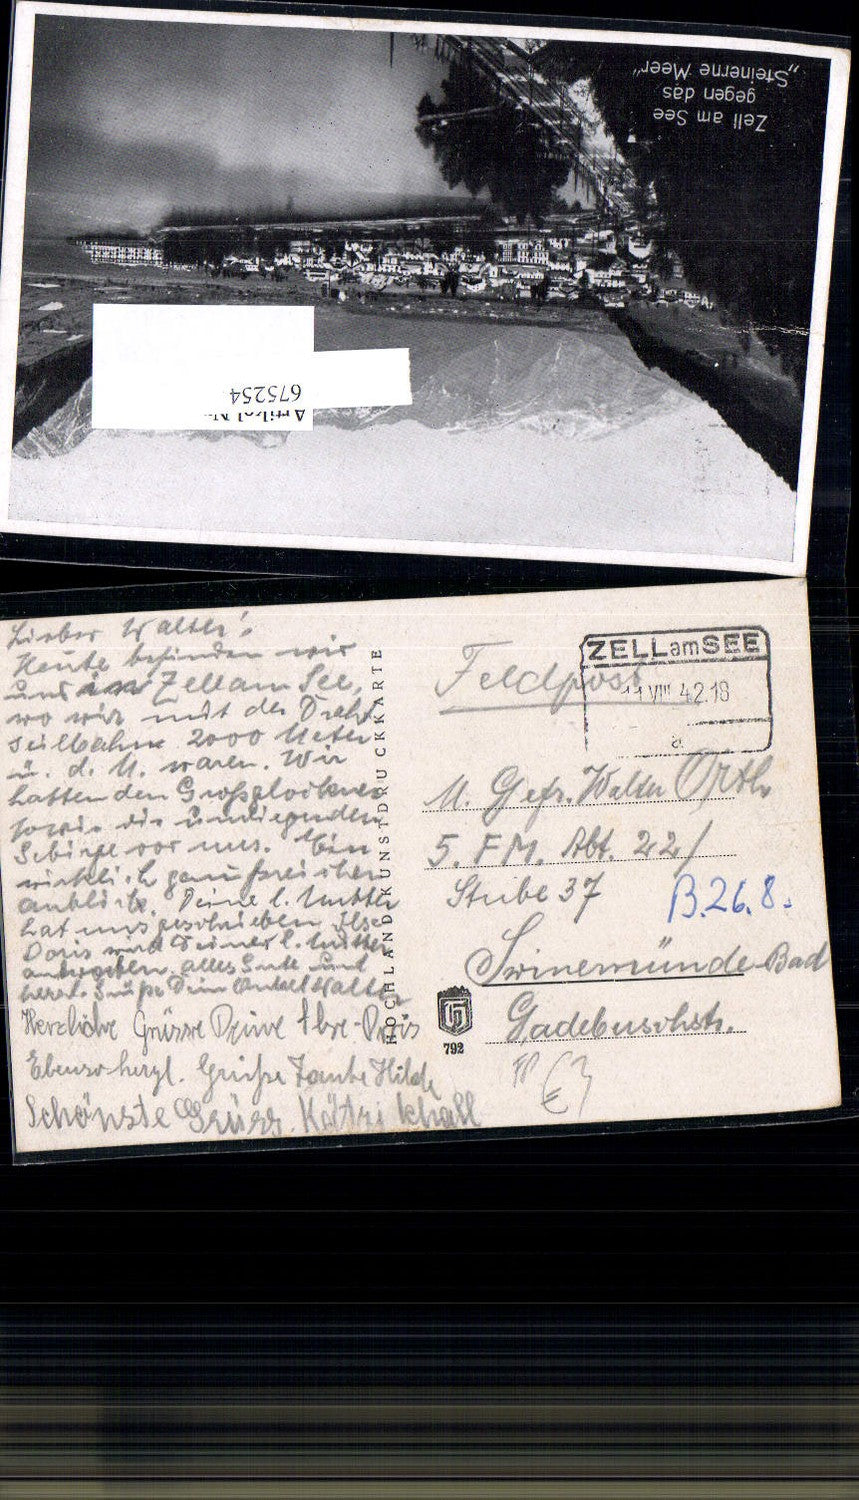 Zell am See
gegen das
„Steinerne Meer"
Artikel Nr.
675254
Lieber Walter!
Heute befinden wir
uns in Zell am See,
wo wir mit der Draht
seilbahn 2000 Meter
ü. d. M. waren. Wir
hatten den Grossglockner
sowie die umliegenden
Gebirge vor uns. Ein
wirklich
anblick. Deine l. Mutter
hat uns geschrieben Ilse
Doris wird Deiner l. Mutter
antworten. Alles Gute und
herzl. Grüße Dein Onkel Walter
Herzliche Grüsse Deine Ilse-Doris
Ebenso herzl. Grüße Tante Hilde
Schönste Grüsse
HOCHLAND KUNSTDRUCKKARTE
792
Feldpost
ZELL am SEE
11 VIII 42.18
a
Gefr. Walter Orth
5. FM. Abt. 22/
Stube 37
B.26.8.
Swinemünde-Bad
Gadebuschstr.
€3